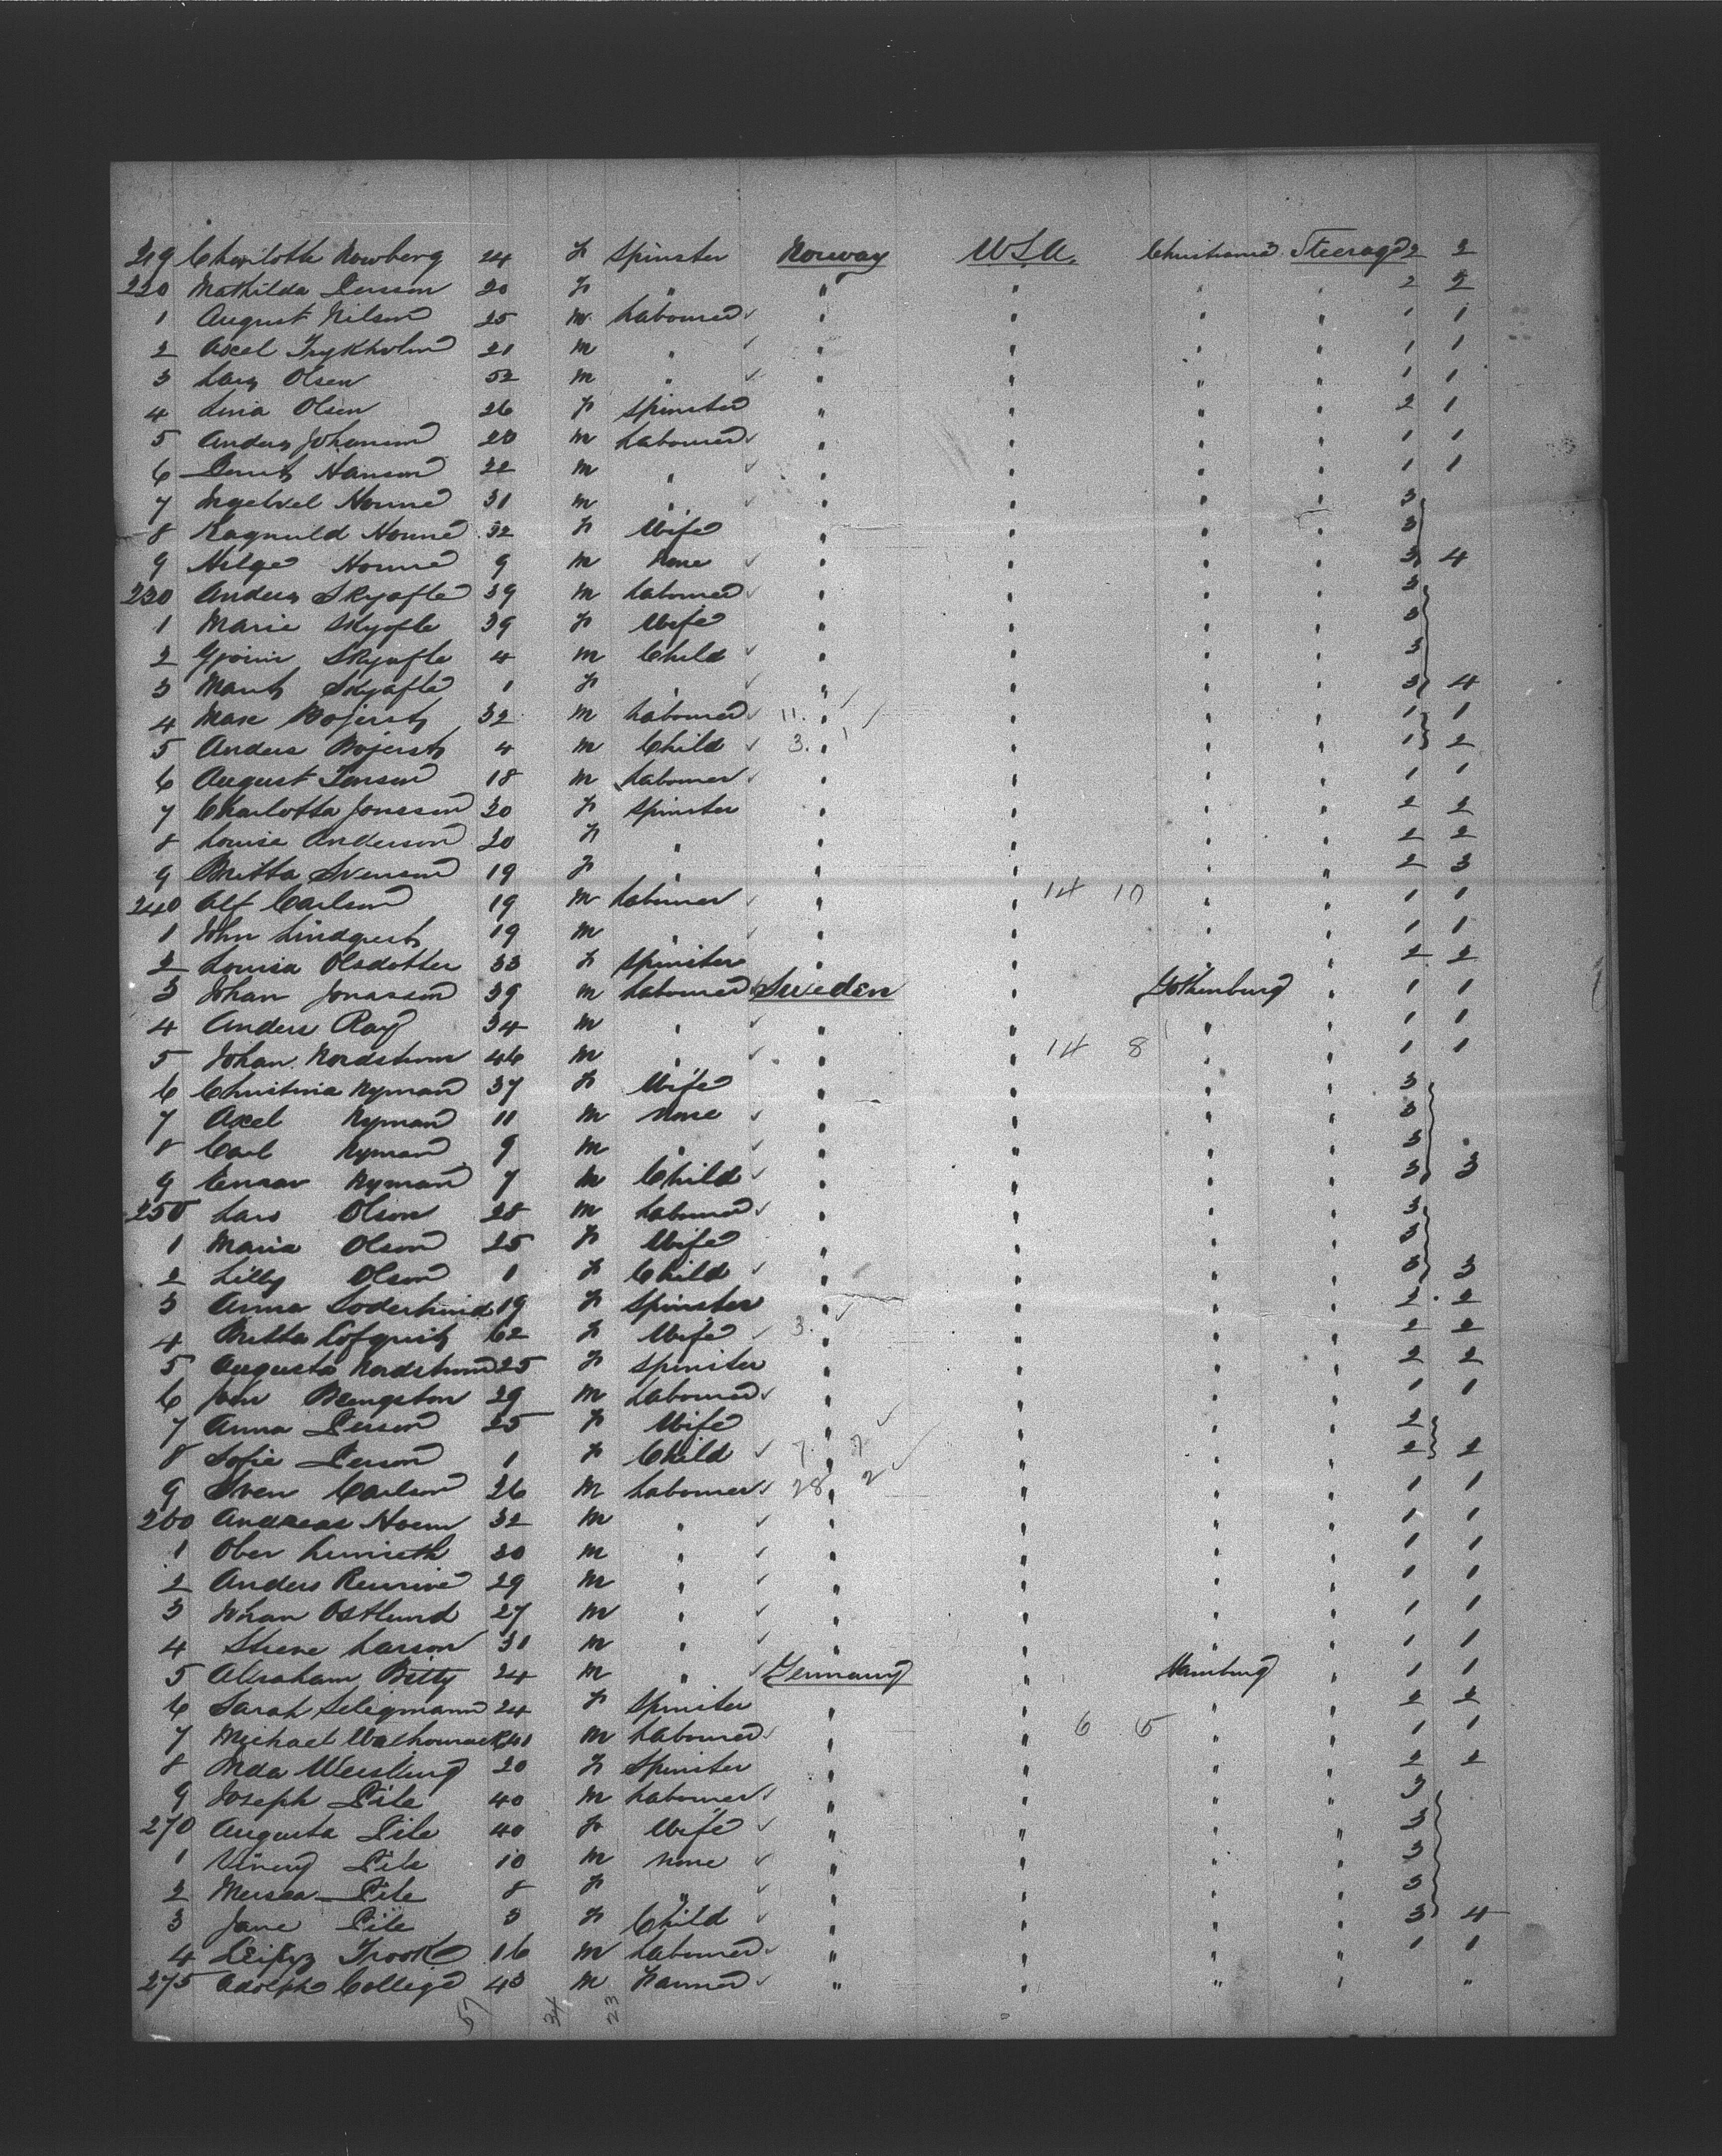 219 Charlotte Nowberg 24 F Spinster Norway U.S.A. Christiania Steerage 2 2
220 Mathilda Person 20 F " " " " " 2 2
1 August Nilson 25 M Labourer " " " " 1 1
2 Axel Frykholm 21 M " " " " " 1 1
3 Lars Olsen 52 M " " " " " 1 1
4 Lina Olsen 26 F Spinster " " " " 2 1
5 Anders Johanson 20 M Labourer " " " " 1 1
6 Hanson 22 M " " " " " 1 1
7 31 M " " " " " 3
8 Ragnuld 32 F Wife " " " " 3
9 Helge 9 M None " " " " 3 4
230 Anders Skyafte 39 M Labourer " " " " 3
1 Marie Skyafte 39 F Wife " " " " 3
2 Skyafte 4 M Child " " " " 3
3 Skyafte 1 F " " " " " 3 4
4 Max Bojerst 32 M Labourer 11. " " " " 1 1
5 Anders Bojerst 4 M Child 3. " " " " 1 2
6 August Jonson 18 M Labourer " " " " 1 1
7 Charlotta Jonsson 30 F Spinster " " " " 2 2
8 Louise Anderson 20 F " " " " " 2 2
9 Britta Svenson 19 F " " " " " 2 3
240 Alf Carlson 19 M Labourer " " 14 10 " " 1 1
1 John Lindquist 19 M " " " " " 1 1
2 Louisa Olsdotter 33 F Spinster " " " " 2 2
3 Johan Jonasson 39 M Labourer Sweden " Gothenburg " 1 1
4 Anders Ray 34 M " " " " " 1 1
5 Johan Nordstrom 46 M " " 14 8 " " 1 1
6 Christina Nyman 37 F Wife " " " " 3
7 Axel Nyman 11 M None " " " " 3
8 Carl Nyman 9 M " " " " " 3
9 Nyman 7 M Child " " " " 3 3
250 Lars Olson 28 M Labourer " " " " 3
1 Maria Olson 25 F Wife " " " " 3
2 Lilly Olson 1 F Child " " " " 3 3
3 Anna 19 F Spinster " " " " 2 2
4 Britta Lofquist 62 F Wife 3. " " " " 2 2
5 Augusta Nordstrom 25 F Spinster " " " " 2 2
6 John Bengston 29 M Labourer " " " " 1 1
7 Anna Person 25 F Wife " " " " 2
8 Sofie Person 1 F Child 7. 2 " " " " 2 2
9 Sven Carlson 26 M Labourer 28 2 " " " " 1 1
260 Andreas 32 M " " " " " 1 1
1 30 M " " " " " 1 1
2 Anders 29 M " " " " " 1 1
3 Johan Ostlund 27 M " " " " " 1 1
4 Larson 31 M " " " " " 1 1
5 Abraham Betty 24 M " Germany " Hamburg " 1 1
6 Sarah Seligmann 24 F Spinster " " " " 2 2
7 Michael M Labourer " " 6 5 " " 1 1
8 20 F Spinster " " " " 2 2
9 Joseph Pile 40 M Labourer " " " " 3
270 Augusta Pile 40 F Wife " " " " 3
1 Pile 10 M None " " " " 3
2 Pile 8 F " " " " " 3
3 Jane Pile 3 F Child " " " " 3 4
4 Trook 16 M Labourer " " " " 1 1
275 Adolph College 43 M Farmer " " " " 1 "
57 34 23